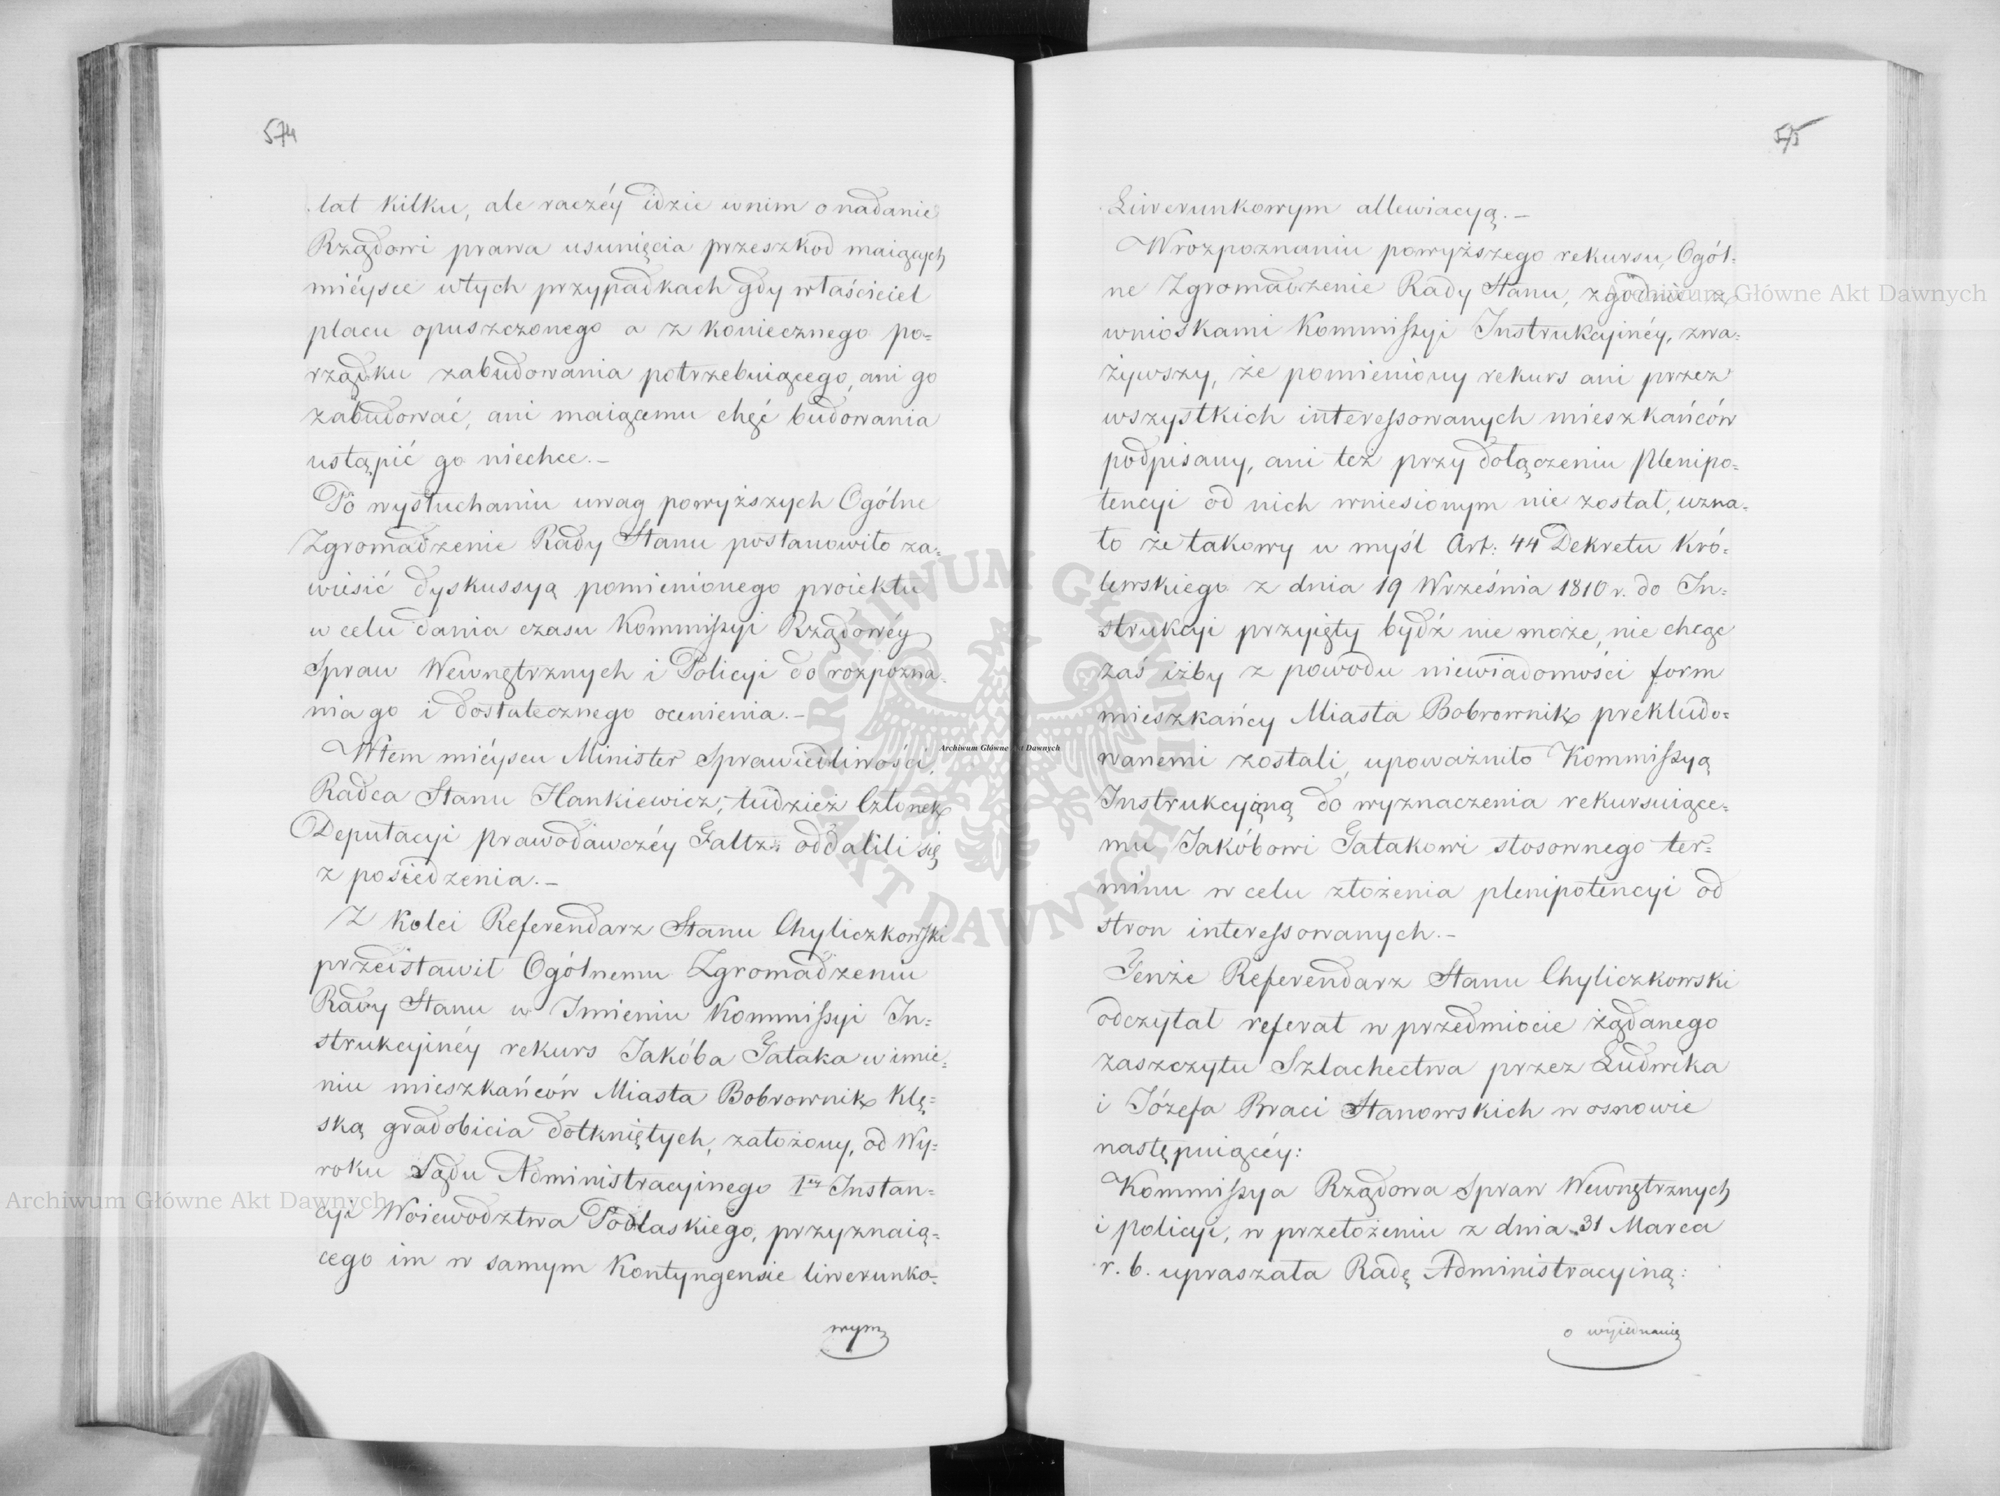 574
lat kilku, ale raczéy idzie wnim o nadanie
Rządowi prawa usunięcia przeszkod maiących
mieysce wtych przypadkach gdy właściciel
placu opuszczonego a z koniecznego po=
rządku zabudowania potrzebuiącego, ani go
zabudować, ani maiącemu chęć budowania
ustąpić go niechce.—
Po wysłuchaniu uwag powyższych Ogólne
Zgromadzenie Rady Stanu postanowiło za=
wiesić dyskussyą pomienionego proiektu
w celu dania czasu Kommissyi Rządowey
Spraw Wewnętrznych i Policyi do rozpozna=
nia go i dostatecznego ocenienia.—
Wtem mieyscu Minister Sprawiedliwości,
Radca Stanu Hankiewicz, tudzież Członek
Deputacyi prawodawczéy Faltz oddalili się
z posiedzenia.—
Z kolei Referendarz Stanu Chyliczkowski
przedstawił Ogólnemu Zgromadzeniu
Rady Stanu w Imieniu Kommissyi In=
strukcyinéy rekurs Jakóba Gałaka w imie=
niu mieszkańców Miasta Bobrownik klę=
ską gradobicia dotkniętych, założony, od Wy=
roku Sądu Administracyinego Iey Instan=
cyi Woiewodztwa Podlaskiego, przyznaią=
cego im w samym Kontyngensie liwerunko=
wym
575
Liwerunkowym allewiacyą.—
W rozpoznaniu powyższego rekursu, Ogól=
ne Zgromadzenie Rady Stanu, zgodnie z
wnioskami Kommissyi Instrukcyinéy, zwa=
żywszy, że pomieniony rekurs ani przez
wszystkich interessowanych mieszkańców
podpisany, ani też przy dołączeniu Plenipo=
tencyi od nich wniesionym nie został, uzna=
ło że takowy w myśl Art: 44 Dekretu Kró=
lewskiego z dnia 19 Września 1810 r. do In=
strukcyi przyięty bydź nie może, nie chcąc
zaś iżby z powodu niewiadomości form
mieszkańcy Miasta Bobrownik prekludo=
wanemi zostali, upoważniło Kommissyą
Instrukcyiną do wyznaczenia rekursuiące=
mu Jakóbowi Gałakowi stosownego ter=
minu w celu złożenia plenipotencyi od
stron interessowanych.—
Tenże Referendarz Stanu Chyliczkowski
odczytał referat w przedmiocie żądanego
zaszczytu Szlachectwa przez Ludwika
i Józefa Braci Stanowskich w osnowie
następuiącéy:
Kommissya Rządowa Spraw Wewnętrznych
i policyi, w przełożeniu z dnia 31 Marca
r. b. upraszała Radę Administracyiną:
o wyiednanie
Archiwum Główne Akt Dawnych
Archiwum Główne Akt Dawnych
Archiwum Główne Akt Dawnych
ARCHIWUM GŁÓWNE AKT DAWNYCH